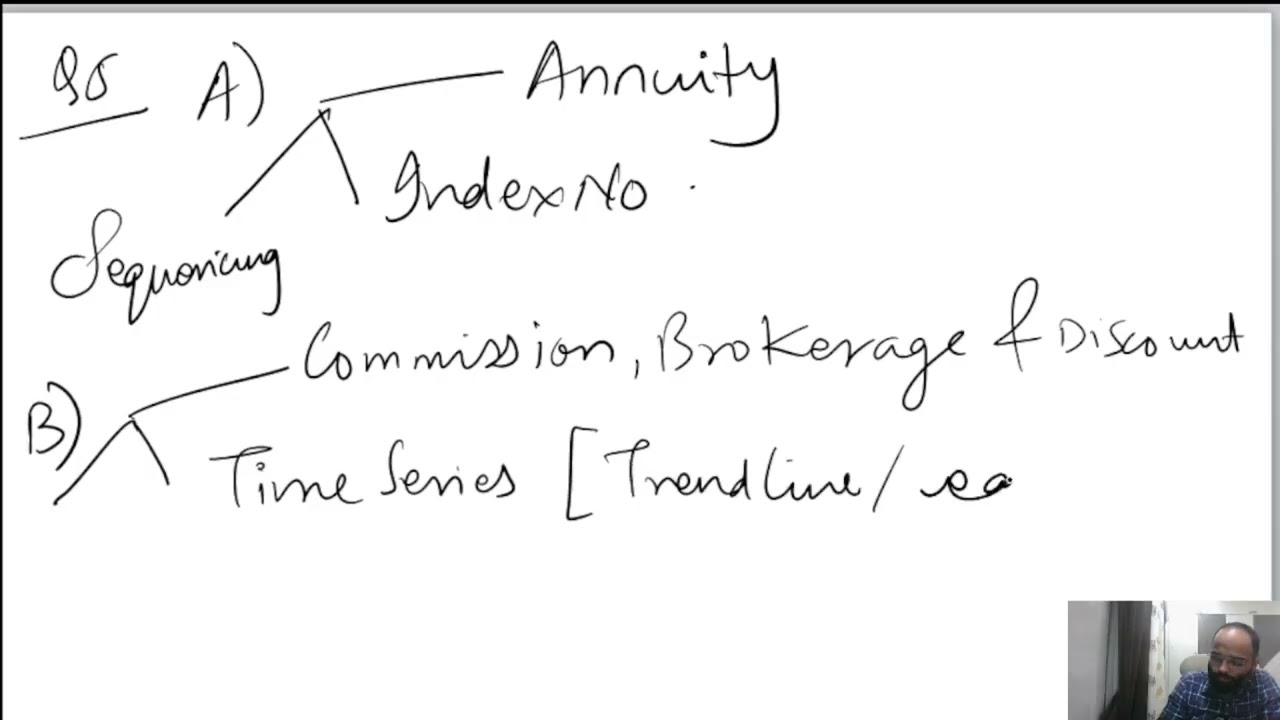 Q5 A) Annuity
Index No.
Sequencing
B) Commission, Brokerage & Discount
Time Series [Trend Line /